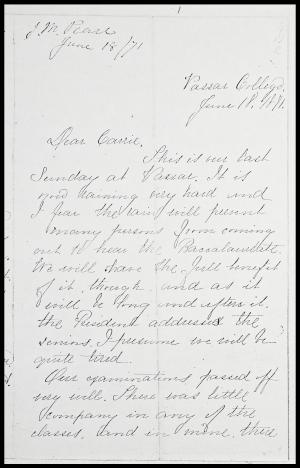 J. M. Pease
June 18/71
Vassar College,
June 18, 1871.
Dear Carrie,
This is our last
Sunday at Vassar. It is
now raining very hard and
I fear the rain will prevent
many persons from coming
out to hear the Baccalaureate.
We will have the full benefit
of it, though, and as it
will be long and after it
the President addresses the
seniors, I presume we will be
quite tired.
Our examinations passed off
very well. There was little
company in any of the
classes, and in mine, there